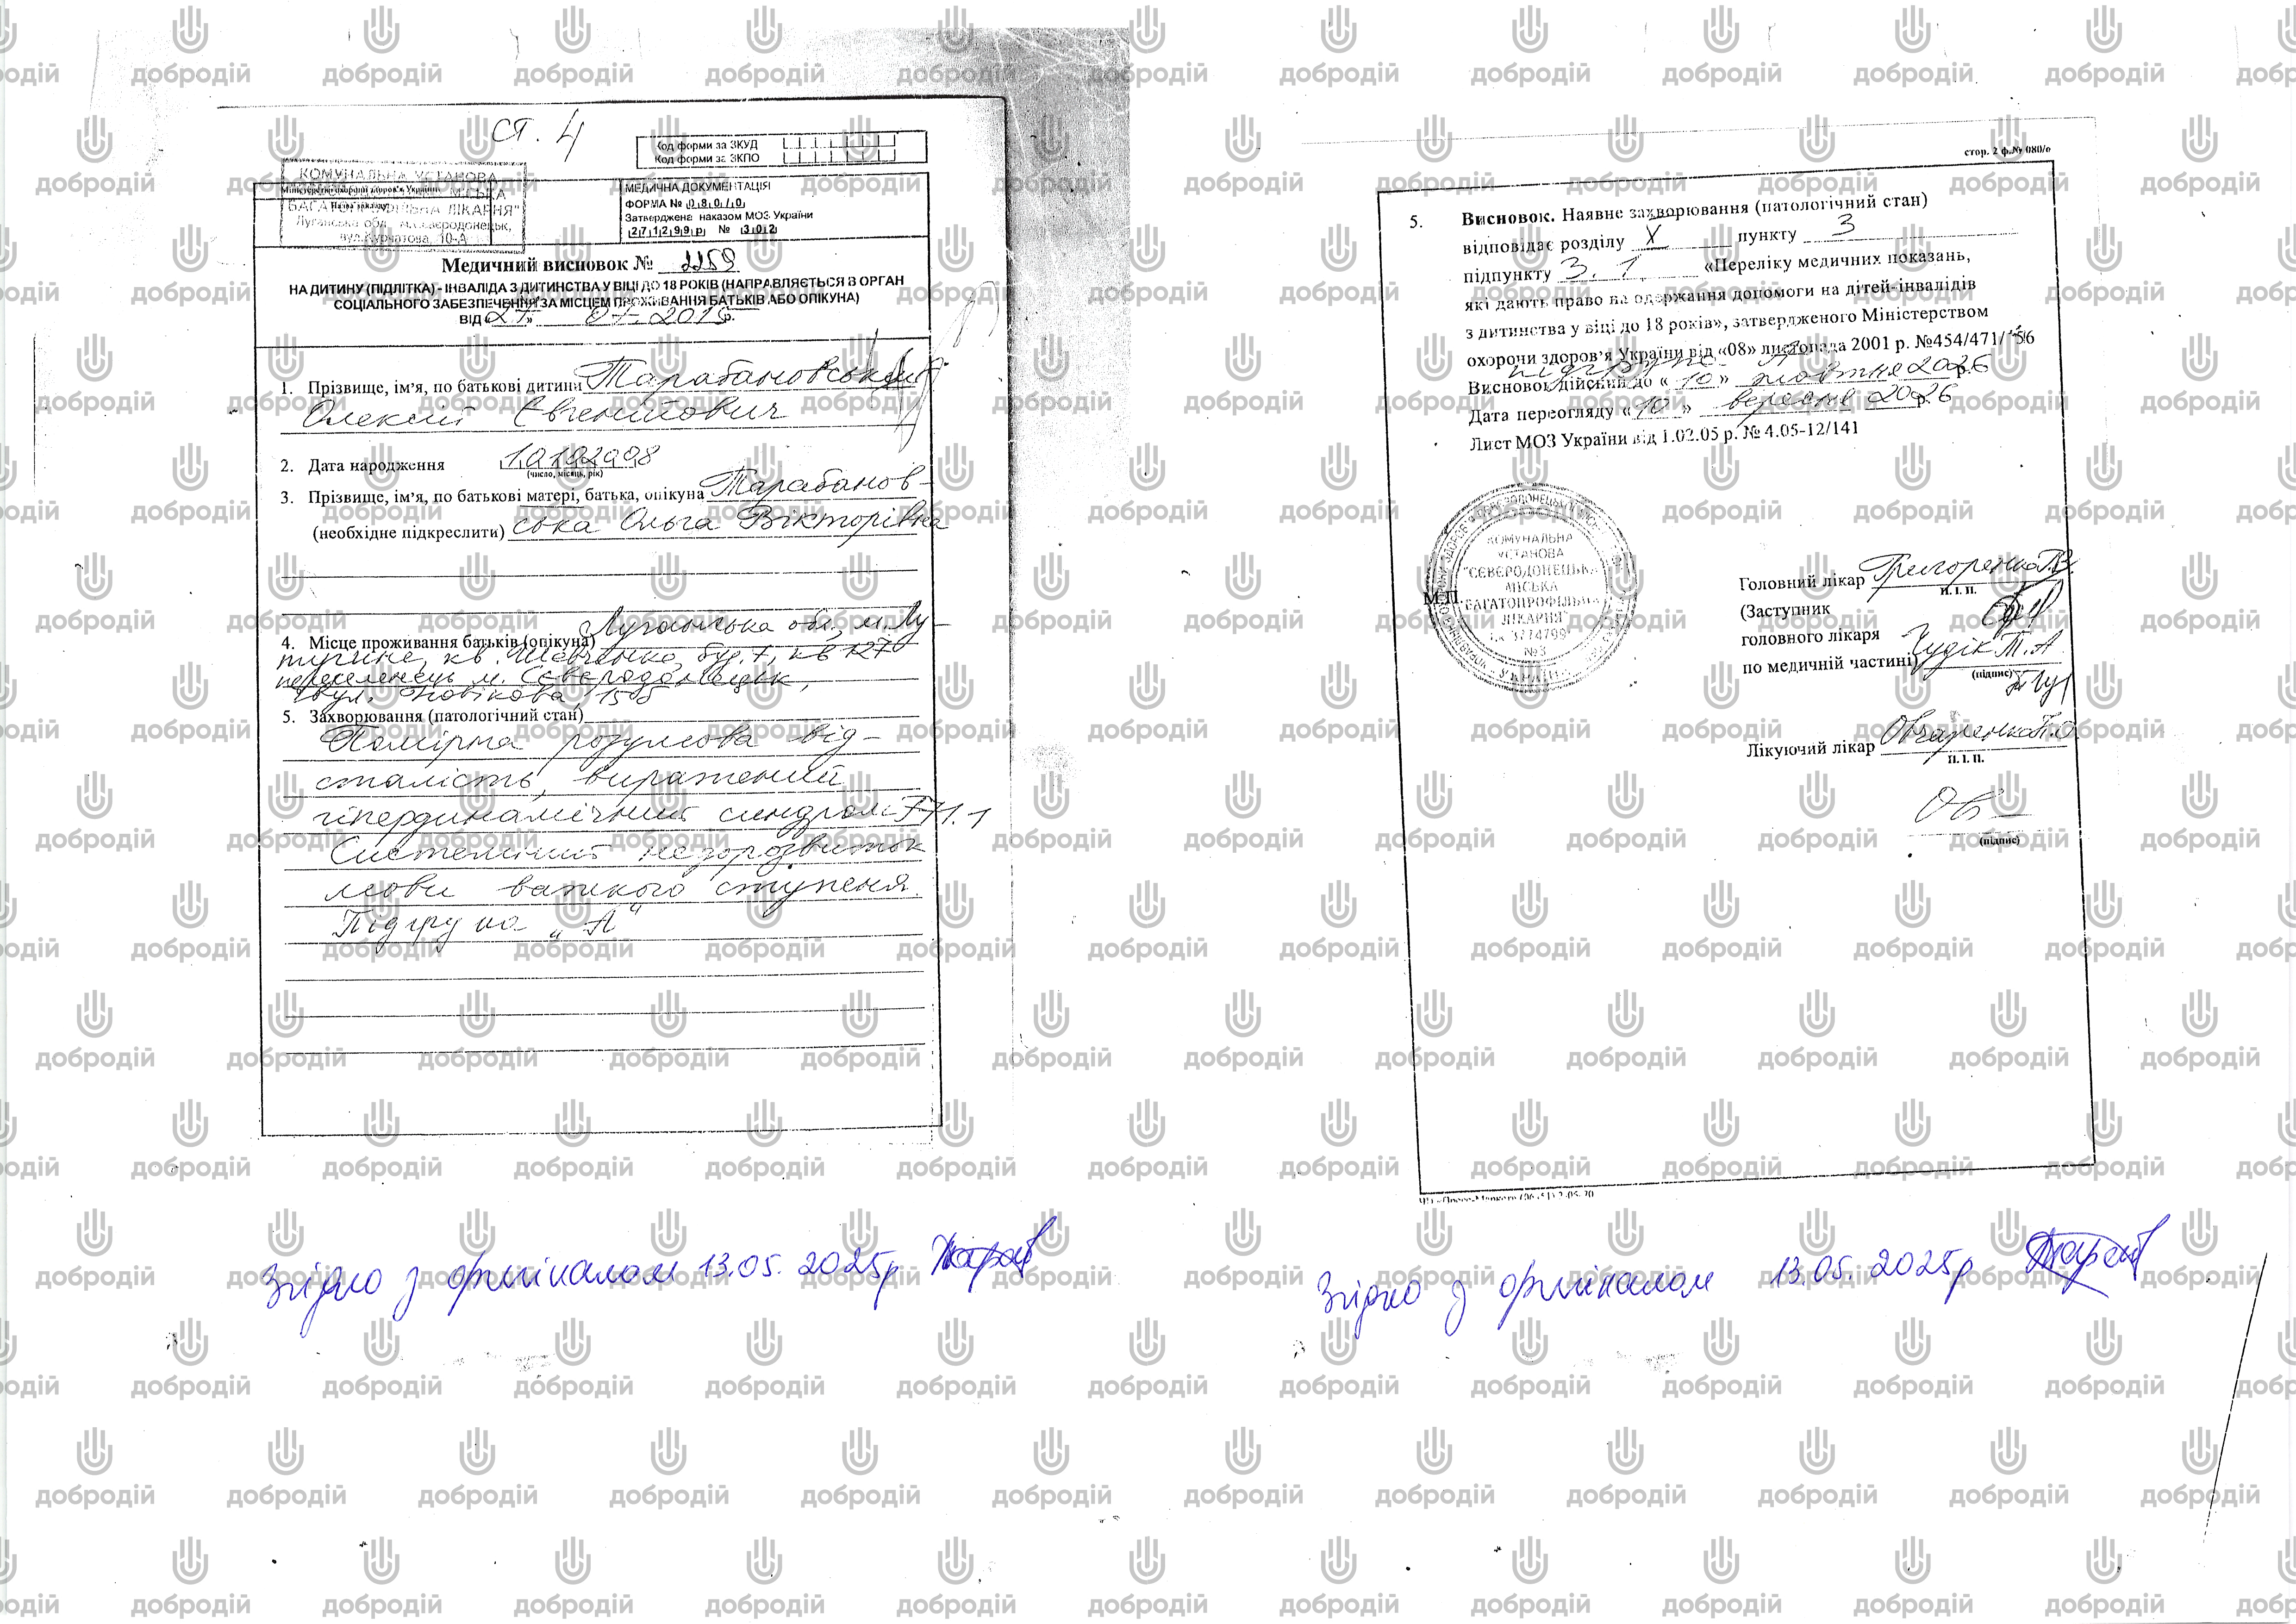 ст. 4
Код форми за ЗКУД
Код форми за ЗКПО
КОМУНАЛЬНА УСТАНОВА
Міністерство охорони здоров'я України
МІСЬКА
БАГАТОПРОФІЛЬНА ЛІКАРНЯ"
Луганська обл., м.Сєвєродонецьк,
вул.Курчатова, 10-А
МЕДИЧНА ДОКУМЕНТАЦІЯ
ФОРМА № 0 8 0 / 0
Затверджена наказом МОЗ України
2 7 1 2 9 9 р № 3 0 2
Медичний висновок № 2259
НА ДИТИНУ (ПІДЛІТКА) - ІНВАЛІДА З ДИТИНСТВА У ВІЦІ ДО 18 РОКІВ (НАПРАВЛЯЄТЬСЯ В ОРГАН
СОЦІАЛЬНОГО ЗАБЕЗПЕЧЕННЯ ЗА МІСЦЕМ ПРОЖИВАННЯ БАТЬКІВ АБО ОПІКУНА)
ВІД «27» 07. 2015 р.
1. Прізвище, ім'я, по батькові дитини Тарабановський
Олексій Євгенійович
2. Дата народження 10102008
(число, місяць, рік)
3. Прізвище, ім'я, по батькові матері, батька, опікуна Тарабанов-
(необхідне підкреслити) ська Ольга Вікторівна
4. Місце проживання батьків (опікуна) Луганська обл., м. Лу-
тугине, кв. Шевченко, буд. 7, кв 127
переселенець м. Сєвєродонецьк,
вул. Новікова, 15б
5. Захворювання (патологічний стан)
Помірна розумова від-
сталість, виражений
гіпердинамічний синдром F71.1
Системний недорозвиток
мови важкого ступеня.
Підгрупа „А"
Згідно з оригіналом 13.05.2025р
стор. 2 ф.№ 080/о
5. Висновок. Наявне захворювання (патологічний стан)
відповідає розділу X пункту 3
підпункту 3.1 «Переліку медичних показань,
які дають право на одержання допомоги на дітей-інвалідів
з дитинства у віці до 18 років», затвердженого Міністерством
охорони здоров'я України від «08» листопада 2001 р. №454/471/516
підгрупа А
Висновок дійсний до «10» жовтня 2026 р.
Дата переогляду «10» вересня 2026 р.
Лист МОЗ України від 1.02.05 р. № 4.05-12/141
КОМУНАЛЬНА
УСТАНОВА
"СЄВЄРОДОНЕЦЬКА
МІСЬКА
БАГАТОПРОФІЛЬНА
ЛІКАРНЯ"
№3
М.П.
Головний лікар Григоренко Т.В.
П. І. П.
(Заступник
головного лікаря Чудік Т.А
по медичній частині)
(підпис)
Лікуючий лікар Овчаренко Т.О
П. І. П.
(підпис)
Згідно з оригіналом 13.05.2025р
добродій